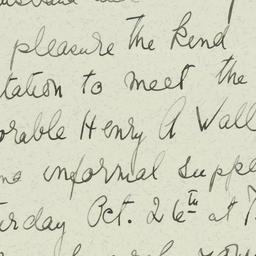 pleasure the kind
tation to meet the
orable Henry A Wall
informal suppe
urday Oct. 26th at 7